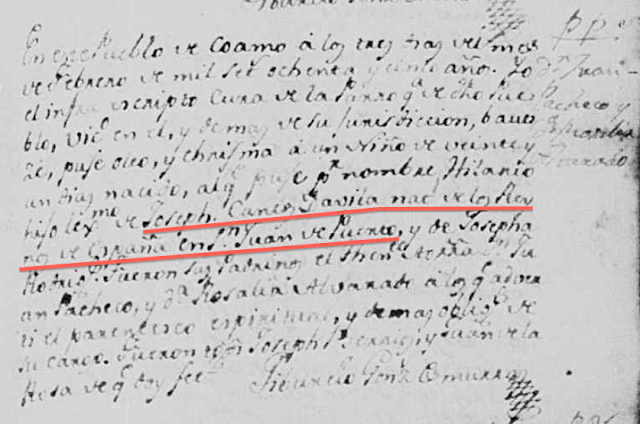 En este Pueblo de Coamo à los tres dias del mes
de Febrero de mil set ochenta y cinco año. Yo
el infra escripto Cura de la Parro q.l de dho Pue
blo, Vic.o en el, y demas de su jurisdiccion, baut
zé, puse oleo, y chrisma à un Niño de veinte y
un dias nacido, al q puse p.r nombre Hilario
hijo lex.mo de Joseph. Davila nat. de los Rey
nos de España en S.n Juan de Puerto, y de Josepha
Rodrig.s Fueron sus Padrinos el then.te D.n Ju
an Pacheco, y d.a Rosalia Alvarado à los q adver
ti el parentesco espiritual, y demas oblig.s de
su cargo. Fueron tgs Joseph y Juan de la
Rosa de q doy fee
Tiburcio Gonz
d.n Juan
Pacheco y
d.a Rosalia
Alvarado